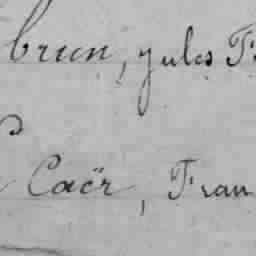 brun, Jules F
Caër, Fran